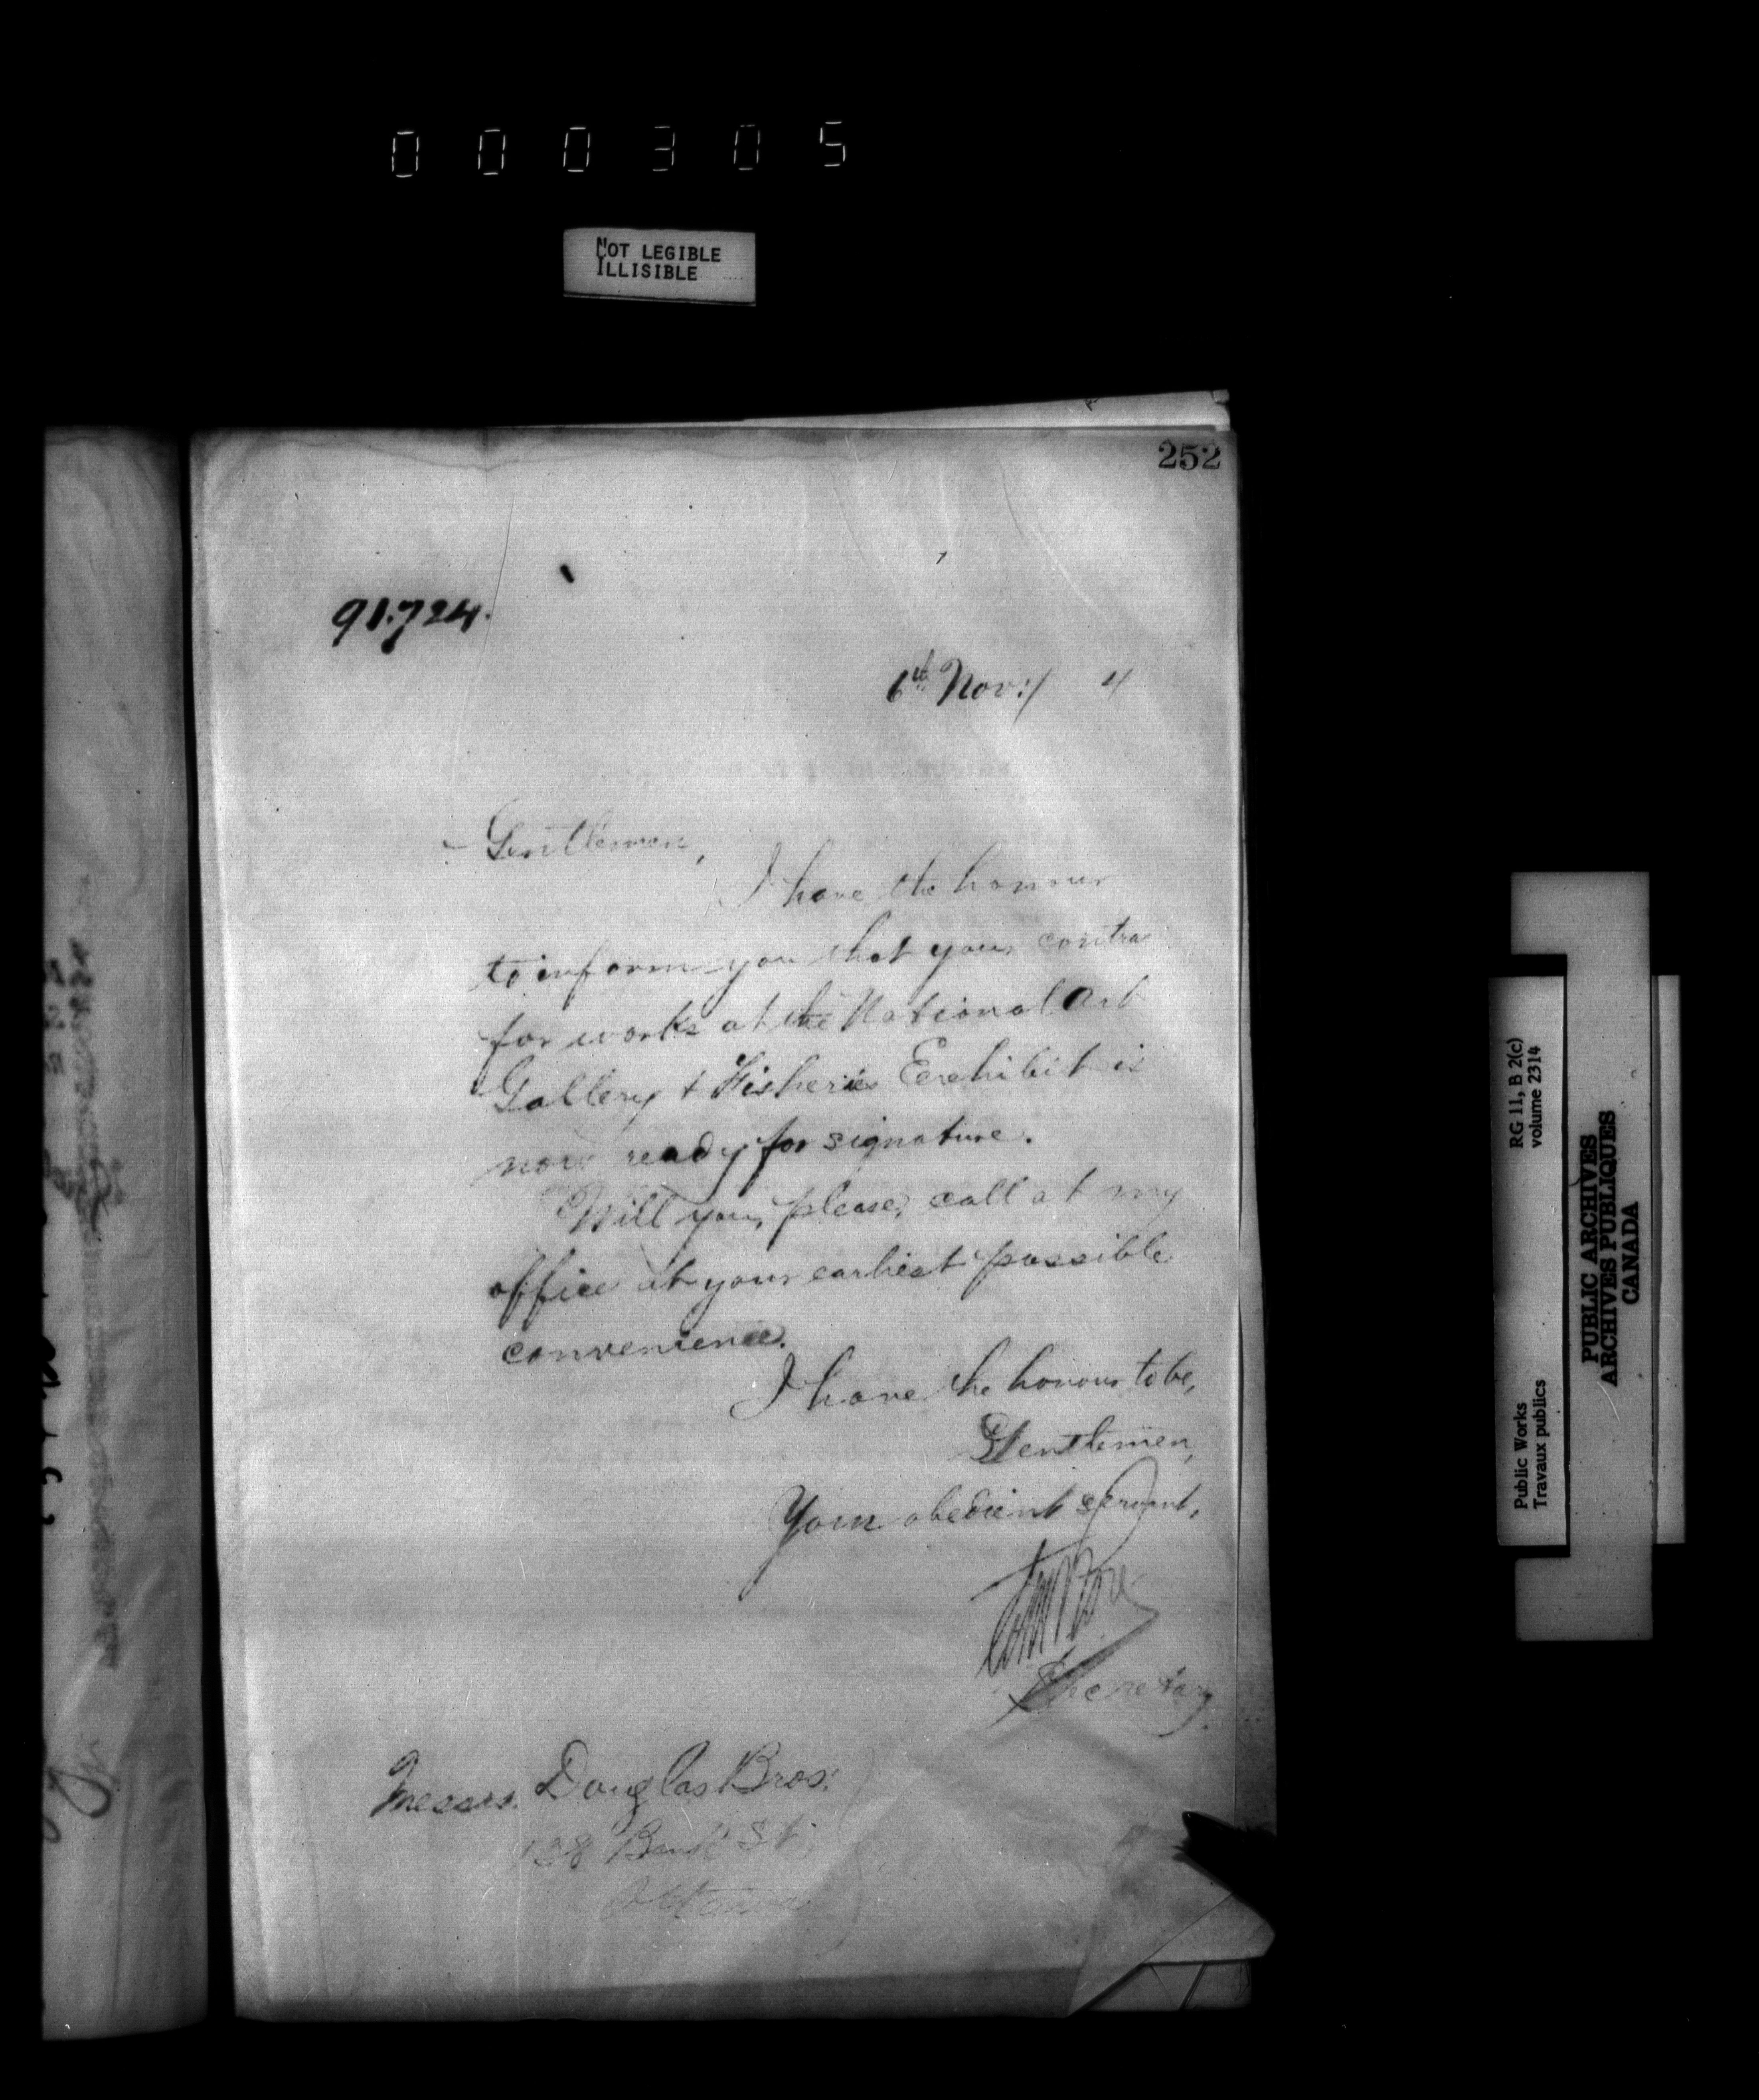 000305
NOT LEGIBLE
ILLISIBLE
252
91.724.
6th Nov:/ 4
Gentlemen,
I have the honour
to inform you that your contra
for works at the National Art
Gallery & Fisheries Exhibit is
now ready for signature.
Will you, please, call at my
office at your earliest possible
convenience.
I have the honour to be,
Gentlemen,
Your obedient servant,
Secretary.
Messrs. Douglas Bros:
138 Bank St.
Ottawa
RG 11, B 2(c)
volume 2314
Public Works
Travaux publics
PUBLIC ARCHIVES
ARCHIVES PUBLIQUES
CANADA